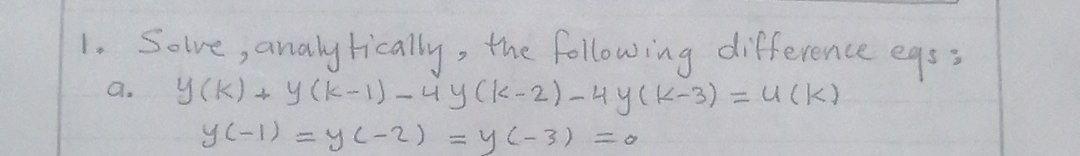 1. Solve, analytically, the following difference eqs:
a. y(k) + y(k-1) - 4y(k-2) - 4y(k-3) = u(k)
y(-1) = y(-2) = y(-3) = 0